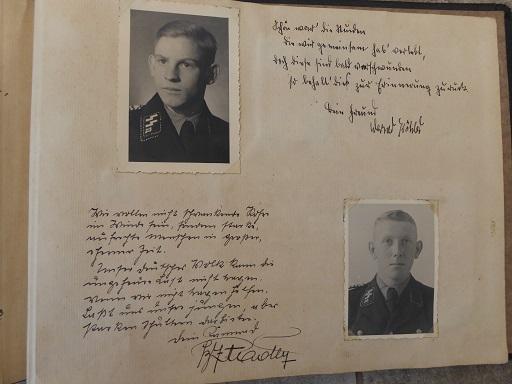 Schön war's die Stunden
die wir gemeinsam hab' verlebt,
doch diese sind bald verschwunden
so behalt' dich zur Erinnerung zurück
Dein Freund
Wir wollen nicht schwankende Rohre
im Winde sein, sondern starke,
aufrechte Menschen in großer,
eherner Zeit.
Unser deutsches Volk kann die
ungeheure Last nicht tragen
wenn wir nicht tragen helfen.
Laßt uns unsere jungen, aber
starken Schultern darbieten.
Dein Kamerad